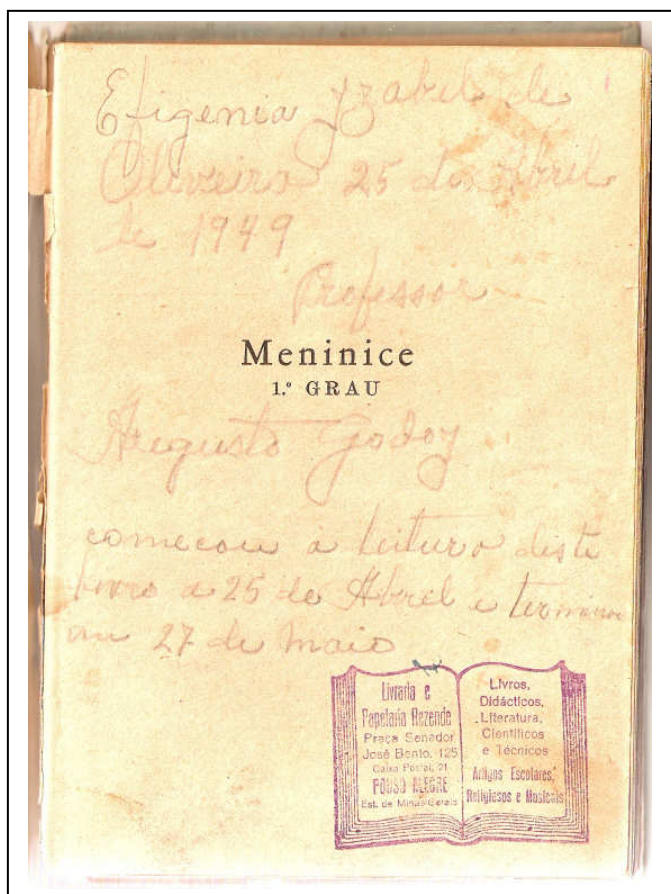 Efigenia Yzabel de
Oliveira 25 de Abril
de 1949
Professor
Meninice
1.º GRAU
Augusto Godoy
comecou a leitura deste
livro a 25 de Abril e terminou
em 27 de maio
Livraria e
Papelaria Rezende
Praça Senador
José Bento, 125
Caixa Postal, 21
POUSO ALEGRE
Est. de Minas Gerais
Livros,
Didácticos,
Literatura,
Científicos
e Técnicos
Artigos Escolares,
Religiosos e Musicais